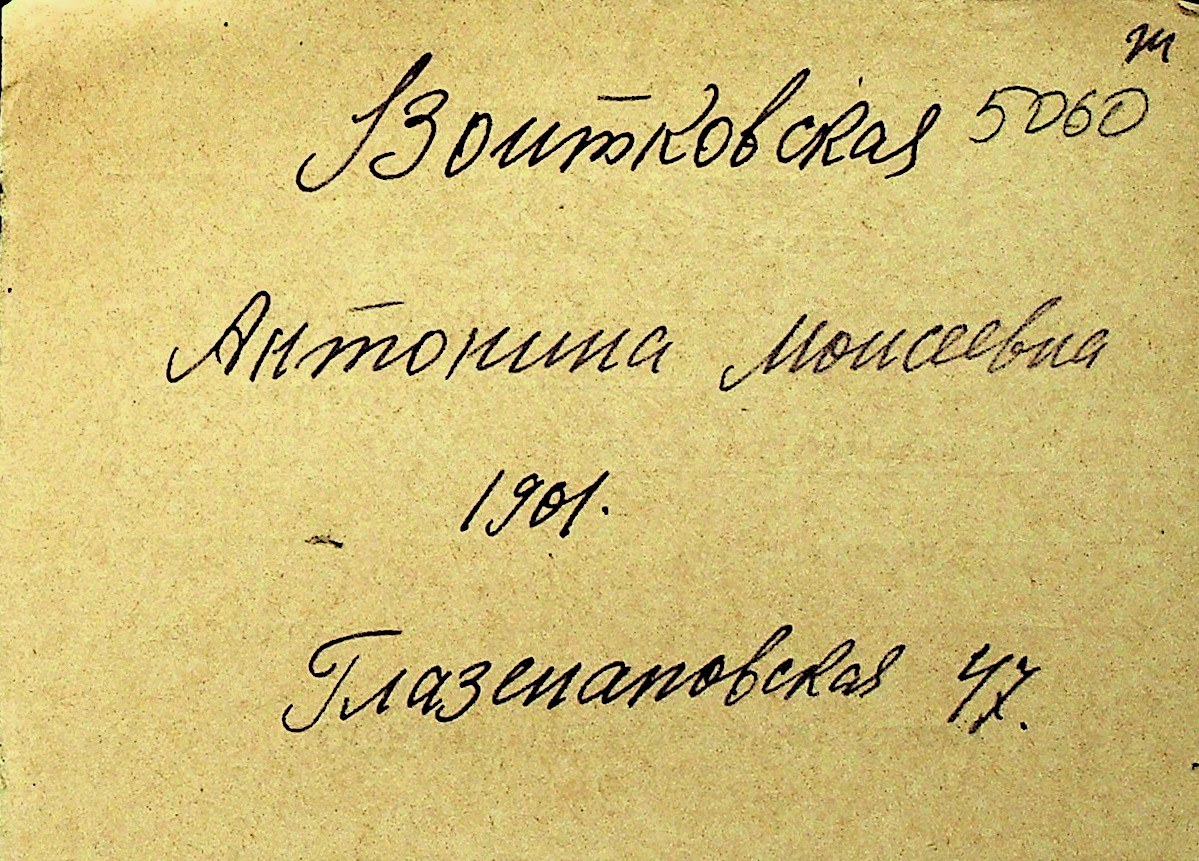 Воитковская 5060
Антонина Моисеевна
1901.
Глазенаповская 47.